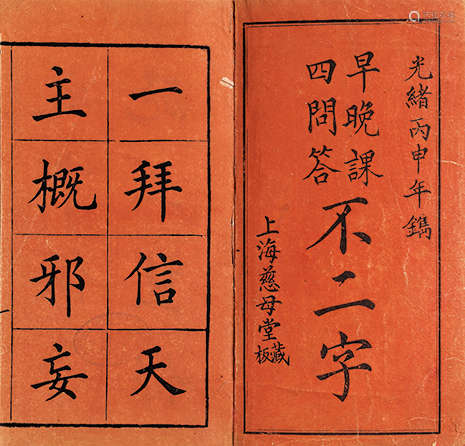 光緒丙申年鐫
早晚課
四問答
不二字
上海慈母堂藏板
一拜信天
主概邪妄